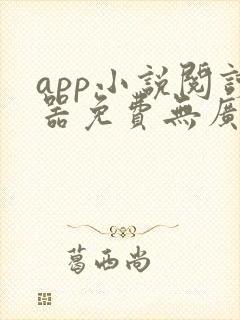 app小説閱
器免費無廣
葛西尚